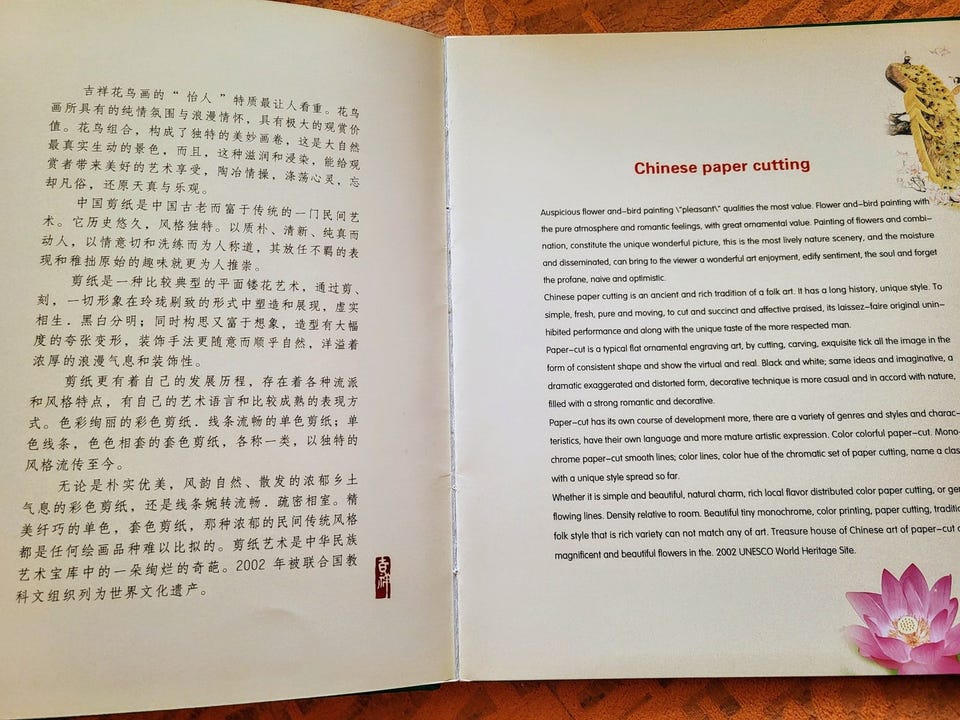 吉祥花鸟画的 “ 怡人 ” 特质最让人看重。花鸟
画所具有的纯情氛围与浪漫情怀，具有极大的观赏价
值。花鸟组合，构成了独特的美妙画卷，这是大自然
最真实生动的景色，而且，这种滋润和浸染，能给观
赏者带来美好的艺术享受，陶冶情操，涤荡心灵，忘
却凡俗，还原天真与乐观。
中国剪纸是中国古老而富于传统的一门民间艺
术。它历史悠久，风格独特。以质朴、清新、纯真而
动人，以情意切和洗练而为人称道，其放任不羁的表
现和稚拙原始的趣味就更为人推崇。
剪纸是一种比较典型的平面镂花艺术，通过剪、
刻，一切形象在玲珑剔致的形式中塑造和展现，虚实
相生．黑白分明；同时构思又富于想象，造型有大幅
度的夸张变形，装饰手法更随意而顺乎自然，洋溢着
浓厚的浪漫气息和装饰性。
剪纸更有着自己的发展历程，存在着各种流派
和风格特点，有自己的艺术语言和比较成熟的表现方
式。色彩绚丽的彩色剪纸．线条流畅的单色剪纸；单
色线条，色色相套的套色剪纸，各称一类，以独特的
风格流传至今。
无论是朴实优美，风韵自然、散发的浓郁乡土
气息的彩色剪纸，还是线条婉转流畅．疏密相室。精
美纤巧的单色，套色剪纸，那种浓郁的民间传统风格
都是任何绘画品种难以比拟的。剪纸艺术是中华民族
艺术宝库中的一朵绚烂的奇葩。2002 年被联合国教
科文组织列为世界文化遗产。
吉祥
Chinese paper cutting
Auspicious flower and-bird painting \"pleasant\" qualities the most value. Flower and-bird painting with
the pure atmosphere and romantic feelings, with great ornamental value. Painting of flowers and combi-
nation, constitute the unique wonderful picture, this is the most lively nature scenery, and the moisture
and disseminated, can bring to the viewer a wonderful art enjoyment, edify sentiment, the soul and forget
the profane, naive and optimistic.
Chinese paper cutting is an ancient and rich tradition of a folk art. It has a long history, unique style. To
simple, fresh, pure and moving, to cut and succinct and affective praised, its laissez-faire original unin-
hibited performance and along with the unique taste of the more respected man.
Paper-cut is a typical flat ornamental engraving art, by cutting, carving, exquisite tick all the image in the
form of consistent shape and show the virtual and real. Black and white; same ideas and imaginative, a
dramatic exaggerated and distorted form, decorative technique is more casual and in accord with nature,
filled with a strong romantic and decorative.
Paper-cut has its own course of development more, there are a variety of genres and styles and charac-
teristics, have their own language and more mature artistic expression. Color colorful paper-cut. Mono-
chrome paper-cut smooth lines; color lines, color hue of the chromatic set of paper cutting, name a clas
with a unique style spread so far.
Whether it is simple and beautiful, natural charm, rich local flavor distributed color paper cutting, or gen
flowing lines. Density relative to room. Beautiful tiny monochrome, color printing, paper cutting, traditio
folk style that is rich variety can not match any of art. Treasure house of Chinese art of paper-cut
magnificent and beautiful flowers in the. 2002 UNESCO World Heritage Site.